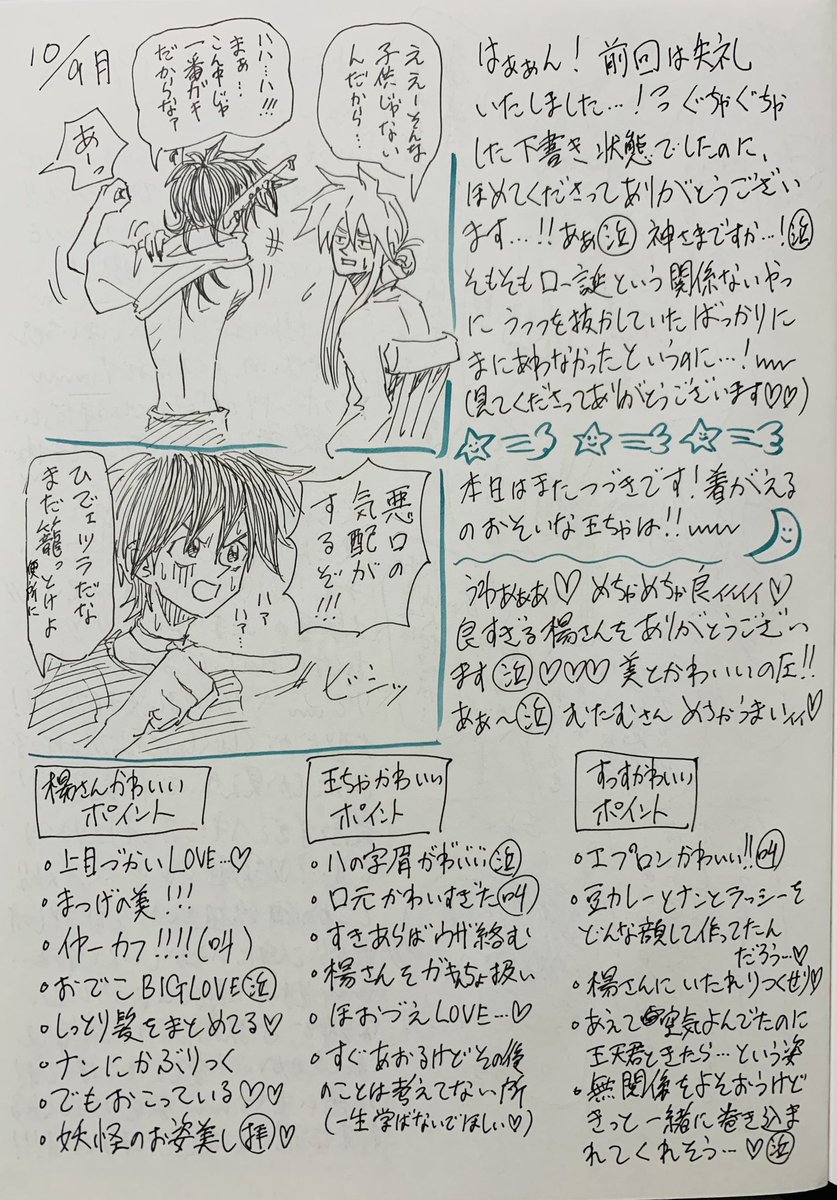 10/9月
ええーそんな
子供じゃない
んだから…
ハハ…ハ!!!
まぁ…
こん中じゃ
一番ガキ
だからなァ
あーっ
はぁぁん! 前回は失礼
いたしました…! ぐちゃぐちゃ
した下書き状態でしたのに、
ほめてくださってありがとうござい
ます…!!あぁ㊇ 神さまですか…!
そもそもロー誕という関係ないやつ
にうつつを抜かしていたばっかりに
まにあわなかったというのに…!
(見てくださってありがとうございます♡♡)
本日はまたつづきです!着がえる
のおそいな王ちゃは!!
悪口の
気配が
するぞ!!!
ハァ
ハァ…
ビシッ
ひでェツラだな
まだ籠っとけよ
便所に
うわぁぁぁ♡ めちゃめちゃ良ィィィィ♡
良すぎる楊さんをありがとうござい
ます(泣)♡♡♡ 美とかわいいの圧!!
あぁ〜(泣) むたむさん めちゃうまいィィ♡
楊さんかわいい
ポイント
・上目づかいLOVE…♡
・まつげの美!!!
・イヤーカフ!!!!(叫)
・おでこBIGLOVE(泣)
・しっとり髪をまとめてる♡
・ナンにかぶりつく
・でもおこっている♡♡
・妖怪のお姿美し(拝)♡
王ちゃかわいい
ポイント
・八の字眉がわいい(泣)
・口元かわいすぎた(叫)
・すきあらばウザ絡む
・楊さんをガキちょ扱い
・ほおづえLOVE…♡
・すぐあおるけどその後
のことは考えてない所
(一生学ばないでほしい♡)
すっすかわいい
ポイント
・エプロンかわいい!!(叫)
・豆カレーとナンとラッシーを
どんな顔して作ってたん
だろう…♡
・楊さんにいたれりつくせり♡
・あえて空気よんでたのに
王天君ときたら…という姿
・無関係をよそおうけど
きっと一緒に巻き込ま
れてくれそう…♡(泣)